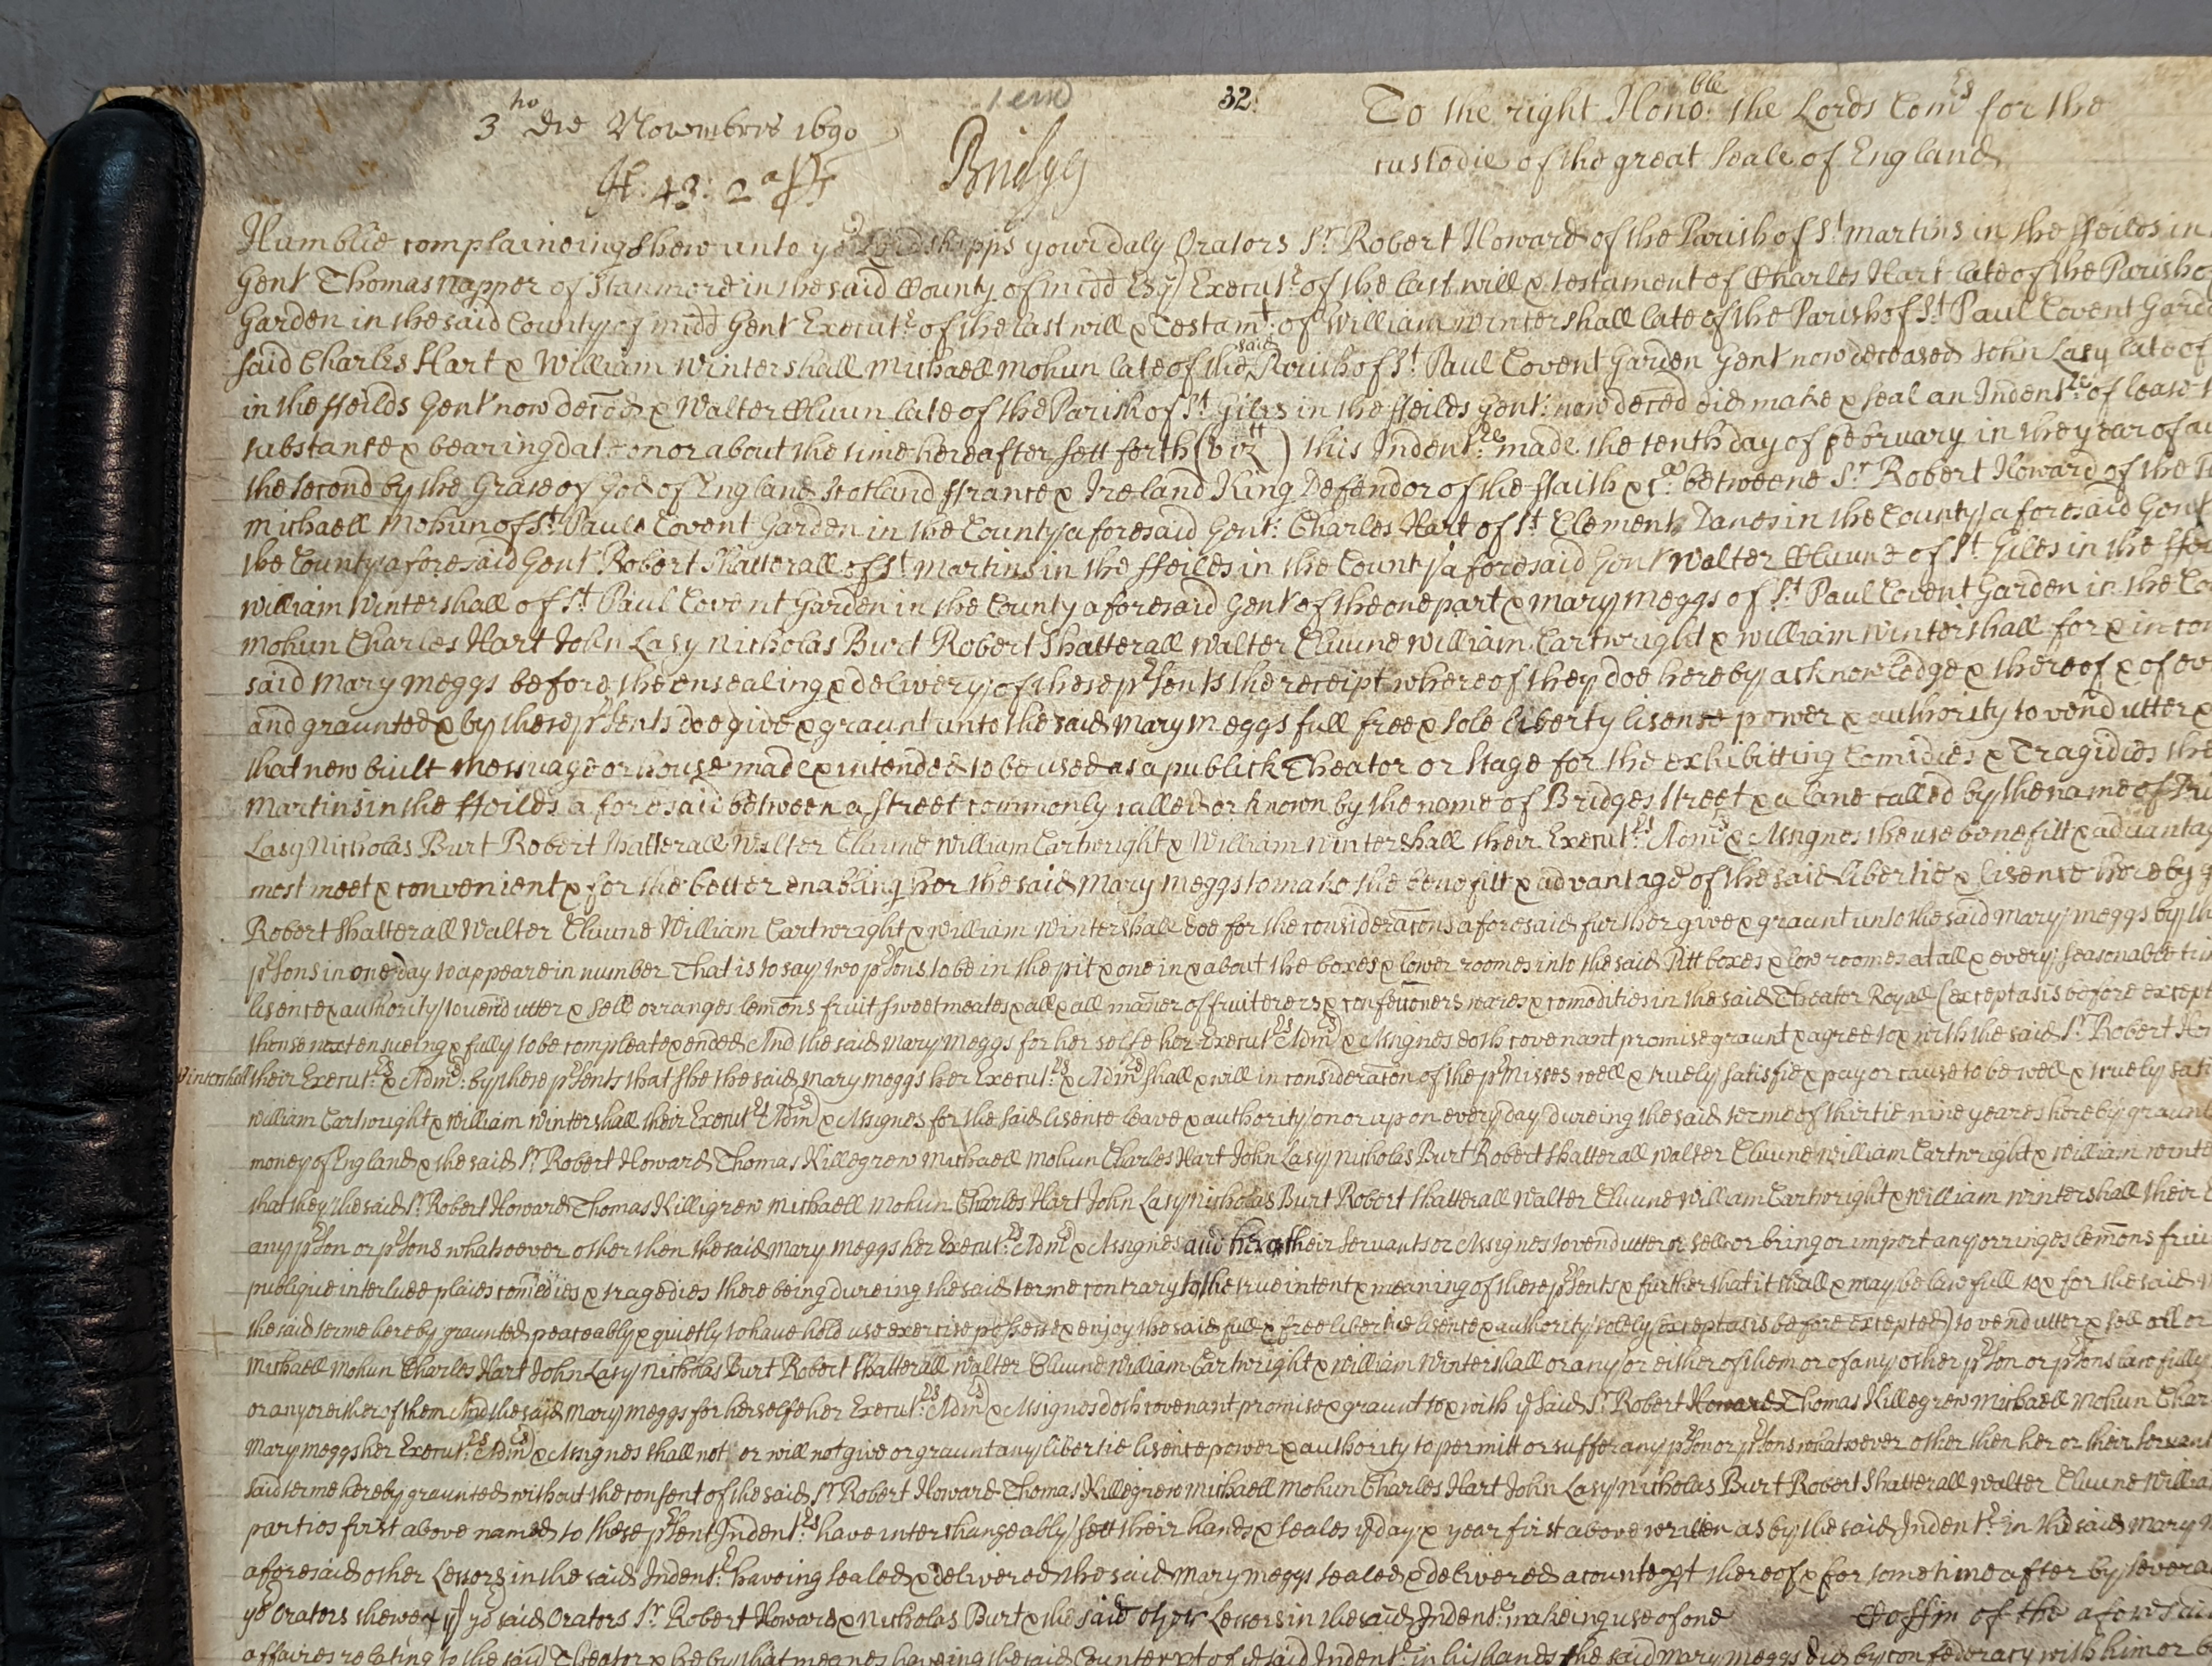 1 end
32.
3ho die Novembris 1690
Bridgs
To the right Honoble. the Lords Comrs for the
custodie of the great Seale of England
Humblie complaineing shew unto yor Lordshipps your daly Orators Sr Robert Howard of the Parish of St martins in the ffeilds in
Gent Thomas Napper of Stanmore in the said County of midd Esq Executr. of the last will & testament of Charles Hart late of the Parish o
Garden in the said County of midd Gent Executr. of the last will & Testamt: of William Wintershall late of the Parish of St Paul Covent Gard
said Charles Hart & William Wintershall Michaell Mohun late of the said Parish of St Paul Covent Garden Gent now deceased John Lasy late of
in the ffeilds Gent now deced & Walter Cluun late of the Parish of St Giles in the ffeilds Gent: now deced did make & seal an Indentre. of lease
substance & bearing date on or about the time hereafter sett forth (vizt) this Indentre. made the tenth day of february in the year of
the second by the Grace of God of England Scotland ffrance & Ireland King Defendor of the ffaith &c. betweene Sr Robert Howard of the
michaell Mohun of St Pauls Covent Garden in the County aforesaid Gent: Charles Hart of St Clement Danes in the County aforesaid Gent
the County aforesaid Gent Robert Shatterall of St martins in the ffeilds in the County aforesaid Gent Walter Cluune of St Giles in the ffei
William Wintershall of St Paul Covent Garden in the County aforesaid Gent of the one part & mary meggs of St Paul Covent Garden in the Co
Mohun Charles Hart John Lasy Nicholas Burt Robert Shatterall Walter Cluune William Cartwright & William Wintershall for & in con
said Mary meggs before the ensealing & delivery of these prsents the receipt whereof they doe hereby acknowledge & thereof & of ev
and graunted & by these prsents doe give & graunt unto the said Mary meggs full free & sole liberty lisense power & authority to vend utter &
that new built messuage or house made & intended to be used as a publick Theator or Stage for the exhibitting Comidies & Tragidies the
Martins in the ffeilds aforesaid between a street commonly called or known by the name of Bridges street & a lane called by the name of
Lasy Nicholas Burt Robert Shatterall Walter Cluune William Cartwright & William Wintershall their Executrs. Admrs & Assignes the use benefitt & advantag
most meet & convenient & for the better enabling her the said Mary meggs to make the benefitt & advantage of the said libertie & lisence hereby g
Robert Shatterall Walter Cluune William Cartwright & William Wintershall doe for the consideracons aforesaid further give & graunt unto the said Mary meggs by th
prsons in one day to appeare in number That is to say two prsons to be in the pit & one in & about the boxes & lower roomes into the said Pitt boxes & low roomes at all & every seasonable tim
lisence & authority to vend utter & sell orranges lemons fruit sweetmeates & all & all maner of fruiterers & confectioners wares & comodities in the said Theator Royal (except as is before except
thense next ensueing & fully to be compleate & ended And the said Mary Meggs for her selfe her Executrs Admrs & Assignes doth covenant promise graunt & agree to & with the said Sr Robert Ho
Wintershall their Executrs. & Admrs: by these prsents that she the said mary meggs her Executrs. & Admrs shall & will in consideracon of the prmisses well & truely satisfie & pay or cause to be well & truely sat
William Cartwright & William Wintershall their Executrs Admrs & Assignes for the said lisence leave & authority on or upon every day dureing the said terme of thirtie nine yeares hereby graunt
money of England & the said Sr Robert Howard Thomas Killegrew Michaell Mohun Charles Hart John Lasy Nicholas Burt Robert Shatterall Walter Cluune William Cartwright & William Winte
that they the said Sr Robert Howard Thomas Killigrew Michaell Mohun Charles Hart John Lasy Nicholas Burt Robert Shatterall Walter Cluune William Cartwright & William Wintershall their
any prson or prsons whatsoever other then the said Mary meggs her Executrs. Admrs & Assignes and her or their servants or Assignes to vend utter or sell or bring or import any orringes lemons frui
publique interlude plaies comedies & tragedies there being dureing the said terme contrary to the true intent & meaning of these prsents & further that it shall & may be lawfull to & for the said
the said terme hereby graunted peaceably & quietly to have hold use exercise possesse & enjoy the said full & free libertie lisence & authority solely except as is before excepted) to vend utter & sell all or
Michaell Mohun Charles Hart John Lasy Nicholas Burt Robert Shatterall Walter Cluune William Cartwright & William Wintershall or any or either of them or of any other prson or prsons lawfully
or any or either of them And the said mary meggs for herselfe her Executrs. Admrs & Assignes doth covenant promise & graunt to & with ye said Sr Robert Howard Thomas Killegrew Michaell Mohun Char
Mary meggs her Executrs. Admrs & Assignes shall not or will not give or graunt any libertie lisence power & authority to permitt or suffer any prson or prsons whatsoever other then her or their servant
said terme hereby graunted without the consent of the said Sr Robert Howard Thomas Killegrew Michaell Mohun Charles Hart John Lasy Nicholas Burt Robert Shatterall Walter Cluune Willia
parties first above named to these prsent Indentrs. have interchangeably sett their hands & seales ye day & year first above written as by the said Indentr. in the said mary
aforesaid other Lessors in the said Indentr. haveing sealed & delivered the said Mary meggs sealed & delivered a counterpt thereof & for sometime after by severa
yor Orators sheweth yt yor said Orators Sr Robert Howard & Nicholas Burt & the said other Lessors in the said Indentr. makeing use of one Coffin of the aforesaid
affaires relating to the said Theator & he by that meanes haveing the said Counterpt of ye said Indentr. in his hands the said Mary meggs did by confederacy with him or